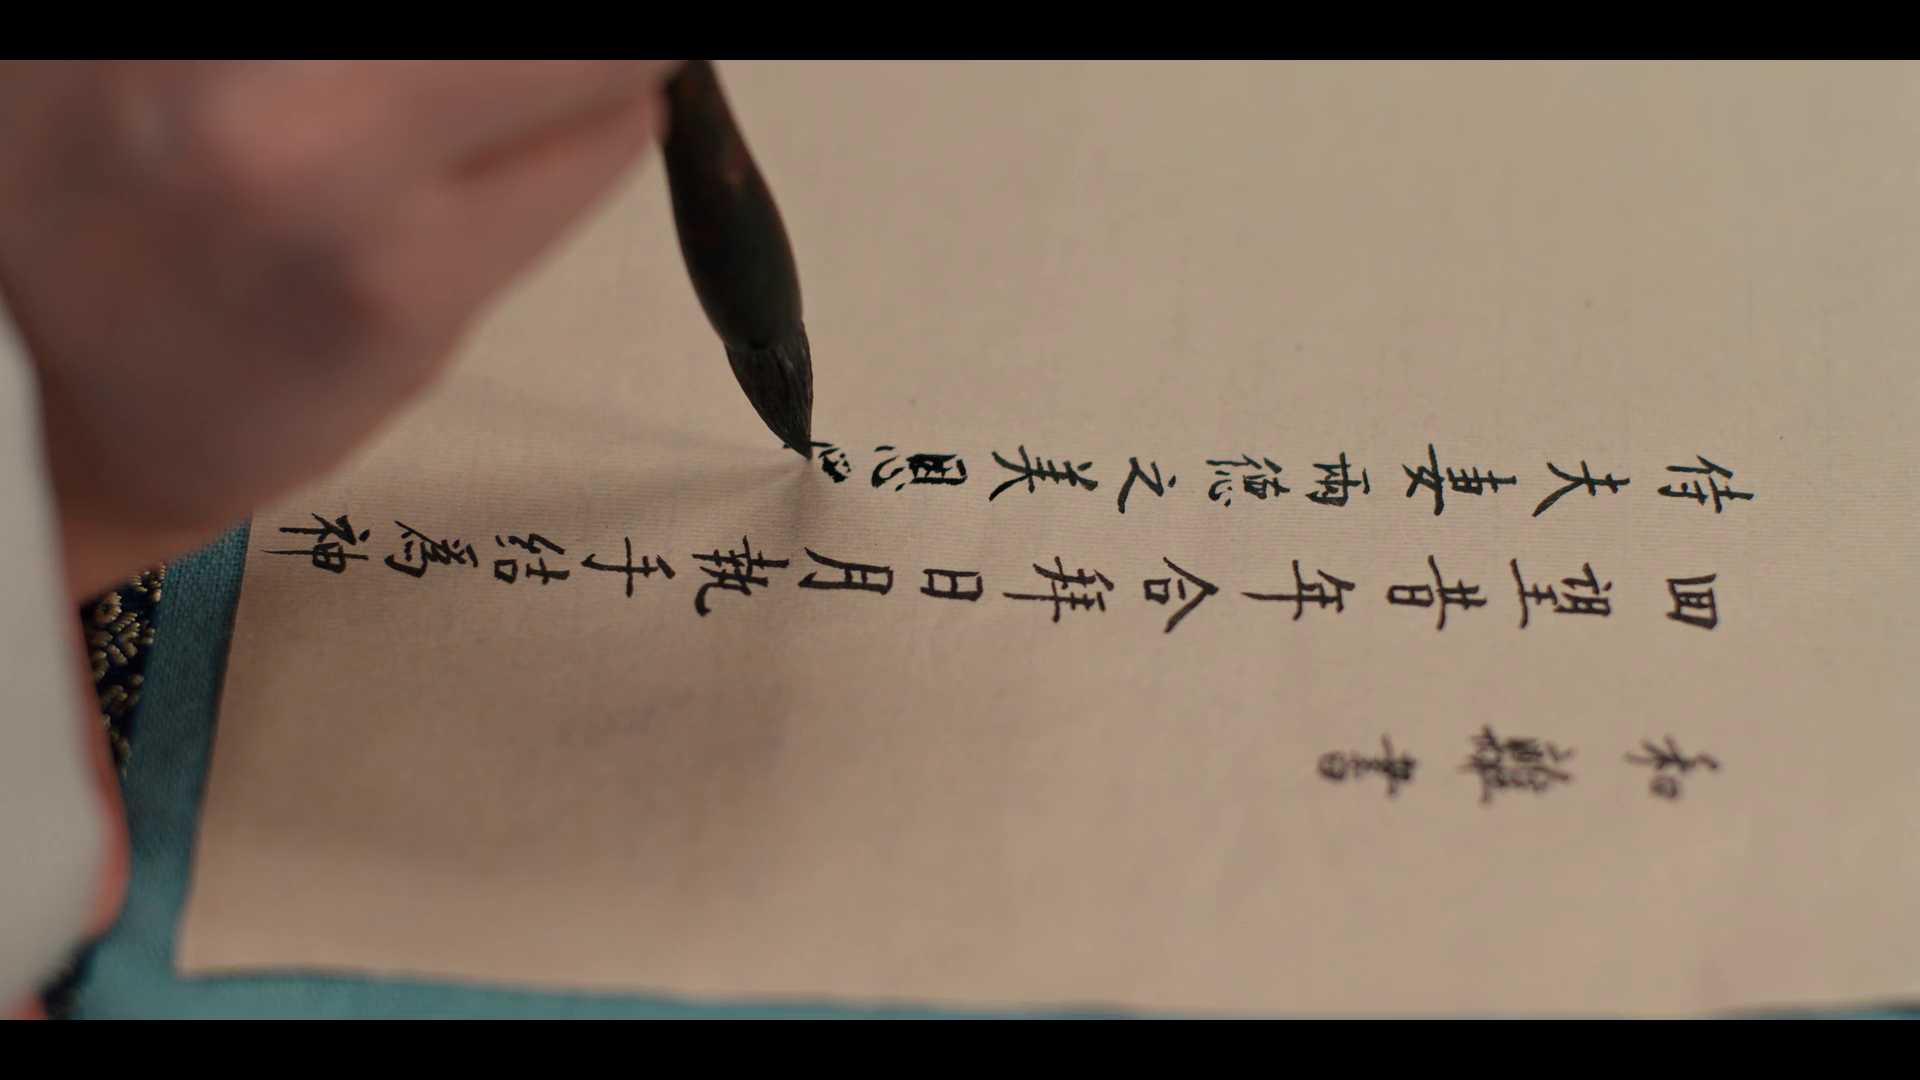 和離書
回望昔年合拜日月執手結為神
夫妻兩德之美恩